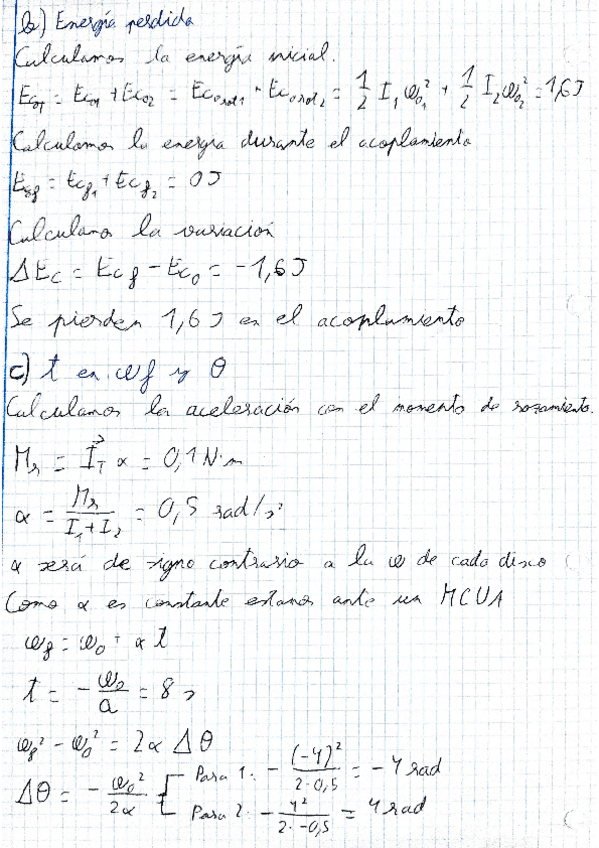 b) Energía perdida
Calculamos la energía inicial.
Ec₀T = Ec₀₁ + Ec₀₂ = Ec₀rot₁ + Ec₀rot₂ = 1/2 I₁ω₀₁² + 1/2 I₂ω₀₂² = 1,6 J
Calculamos la energía durante el acoplamiento
Ecf = Ecf₁ + Ecf₂ = 0 J
Calculamos la variación
ΔEc = Ecf - Ec₀ = -1,6 J
Se pierden 1,6 J en el acoplamiento
c) t en ωf y θ
Calculamos la aceleración con el momento de rozamiento.
Mr = I⃗T α = 0,1 N·m
α = Mr/(I₁+I₂) = 0,5 rad/s²
α será de signo contrario a la ω de cada disco
Como α es constante estamos ante un MCUA
ωf = ω₀ + α t
t = - ω₀/a = 8 s
ωf² - ω₀² = 2α Δθ
Δθ = - ω₀²/2α
Para 1: - (-4)²/(2·0,5) = -4 rad
Para 2: - 4²/(2·-0,5) = 4 rad